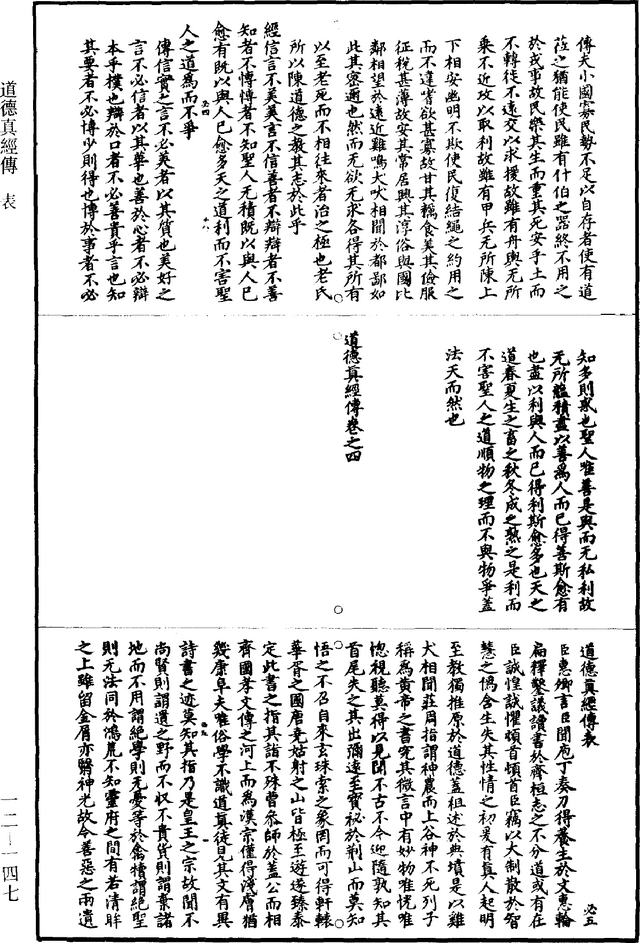 傳夫小國寡民勢不足以自存者使有道
莅之猶能使民雖有什伯之器終不用之
於戎事故民樂其生而重其死安乎土而
不轉徙不遠交以求援故雖有舟輿无所
乘不近攻以取利故雖有甲兵无所陳上
下相安幽明不欺使民復結繩之約用之
而不違嗜欲甚寡故甘其糲食美其儉服
征稅甚薄故安其常居興其淳俗與國比
鄰相望於遠近雞鳴犬吠相聞於都鄙如
此其密邇也然而无欲无求各得其所有
以至老死而不相往來者治之極也老氏
所以陳道德之教其志於此乎
經信言不美美言不信善者不辯辯者不善
知者不博博者不知聖人无積既以與人已
愈有既以與人已愈多天之道利而不害聖
人之道為而不爭
必四
十八
傳信實之言不必美者以其質也美好之
言不必信者以其華也善於心者不必辯
本乎樸也辯於口者不必善貴乎言也知
其要者不必博少則得也博於事者不必
知多則惑也聖人唯善是與而无私利故
无所蘊積盡以善為人而已得善斯愈有
也盡以利與人而已得利斯愈多也天之
道春夏生之畜之秋冬成之熟之是利而
不害聖人之道順物之理而不與物爭蓋
法天而然也
道德真經傳卷之四
道德真經傳表
必五
臣惠卿言臣聞庖丁奏刀得養生於文惠輪
扁釋鑿議讀書於齊桓志之不分道或有在
臣誠惶誠懼頓首頓首臣竊以大制散於智
慧之偽含生失其性情之初爰有真人起明
至教獨推原於道德蓋祖述於典墳是以雞
犬相聞莊周指謂神農而上谷神不死列子
稱為黃帝之書究其微言中有妙物唯恍唯
惚視聽莫得以見聞不古不今迎隨孰知其
首尾失之其出彌遠至寶祕於荊山而莫知
悟之不召自來玄珠索之象罔而可得軒轅
華胥之國唐堯姑射之山皆極至遊遂臻泰
定此書之指其詣不殊曾參師於蓋公而相
齊國孝文傳之河上而為漢宗僅得淺膚猶
幾康阜夫唯俗學不識道真徒見其文有異
詩書之迹莫知其指乃是皇王之宗故聞不
尚賢則謂遺之野而不收不貴貨則謂棄諸
地而不用謂絕學則无憂等於禽犢謂絕聖
則无法同於鴻荒不知靈府之間有若清眸
之上雖留金屑亦翳神光故令善惡之兩遺
道德真經傳 表
一二—一四七